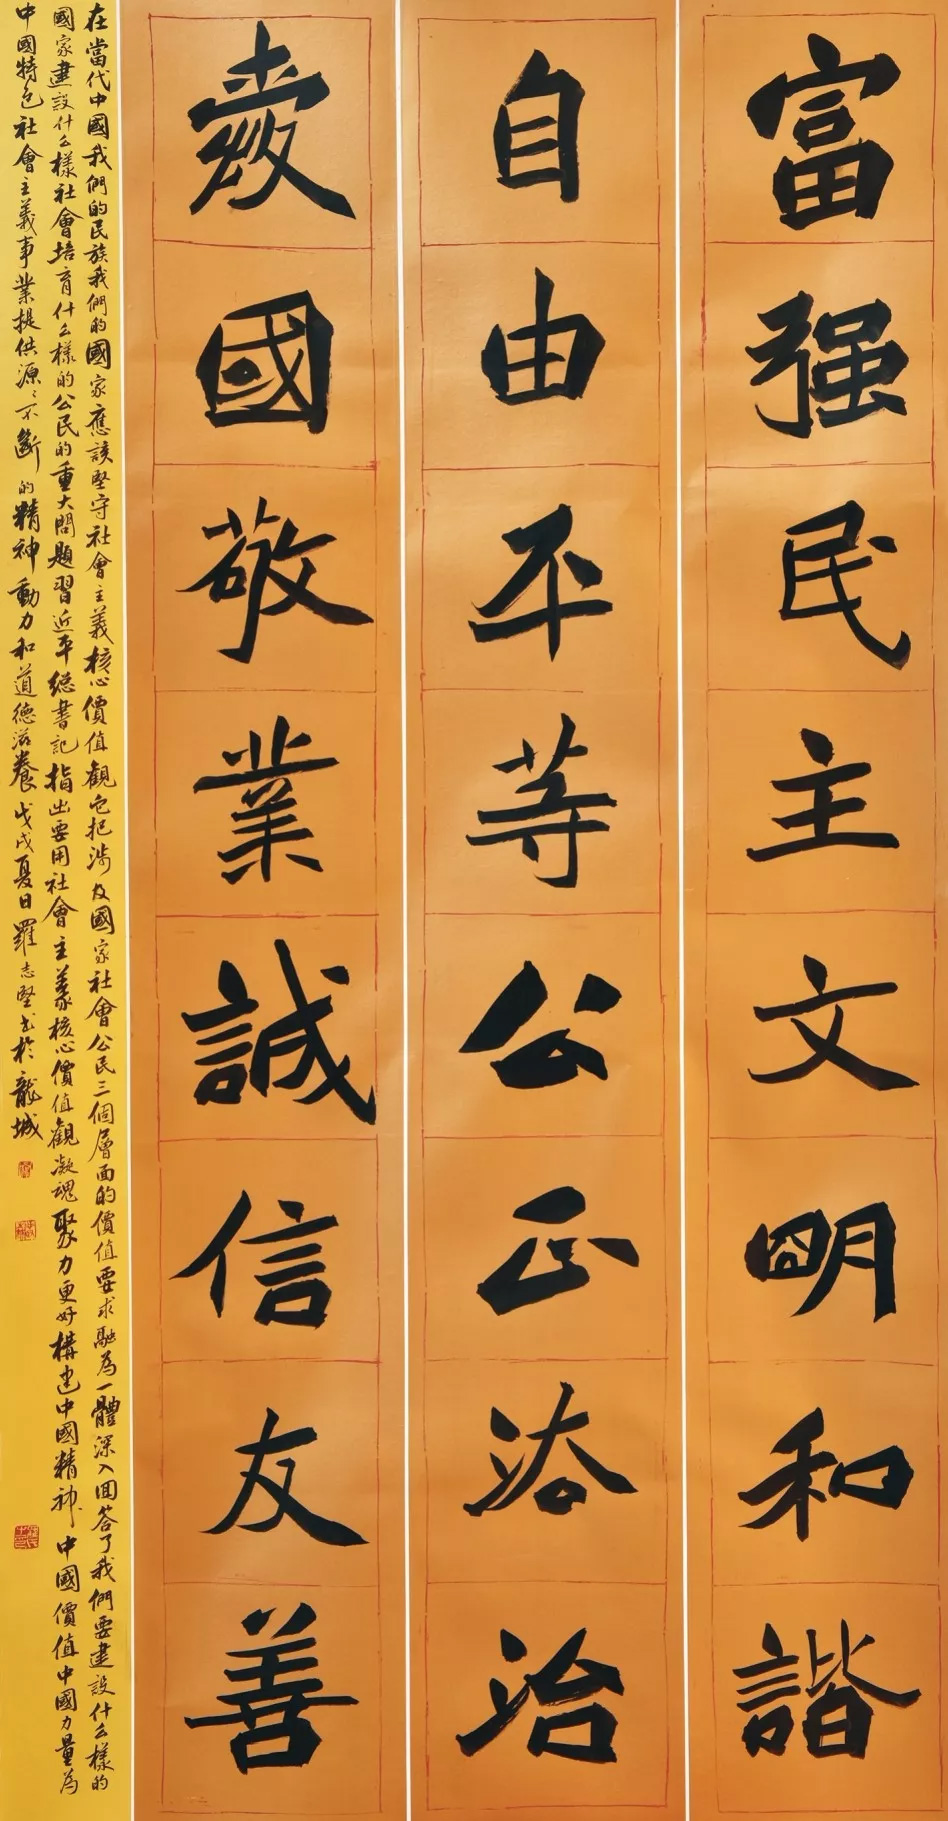 富强民主文明和諧
自由平等公正法治
愛國敬業誠信友善
在當代中國我們的民族我們的國家應該堅守社會主義核心價值觀它把涉及國家社會公民三個層面的價值要求融為一體深入回答了我們要建設什么樣的
國家建設什么樣社會培育什么樣的公民的重大問題習近平總書記指出要用社會主義核心價值觀凝魂聚力更好構建中國精神中國價值中國力量為
中國特色社會主義事業提供源〻不斷的精神動力和道德滋養戊戌夏日羅志堅書於龍城